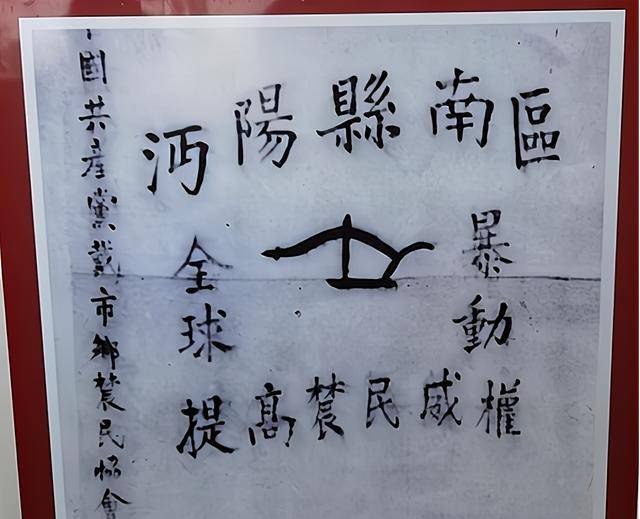 沔陽縣南區
全球
暴動
提高農民威權
國共產黨戴市鄉農民協會